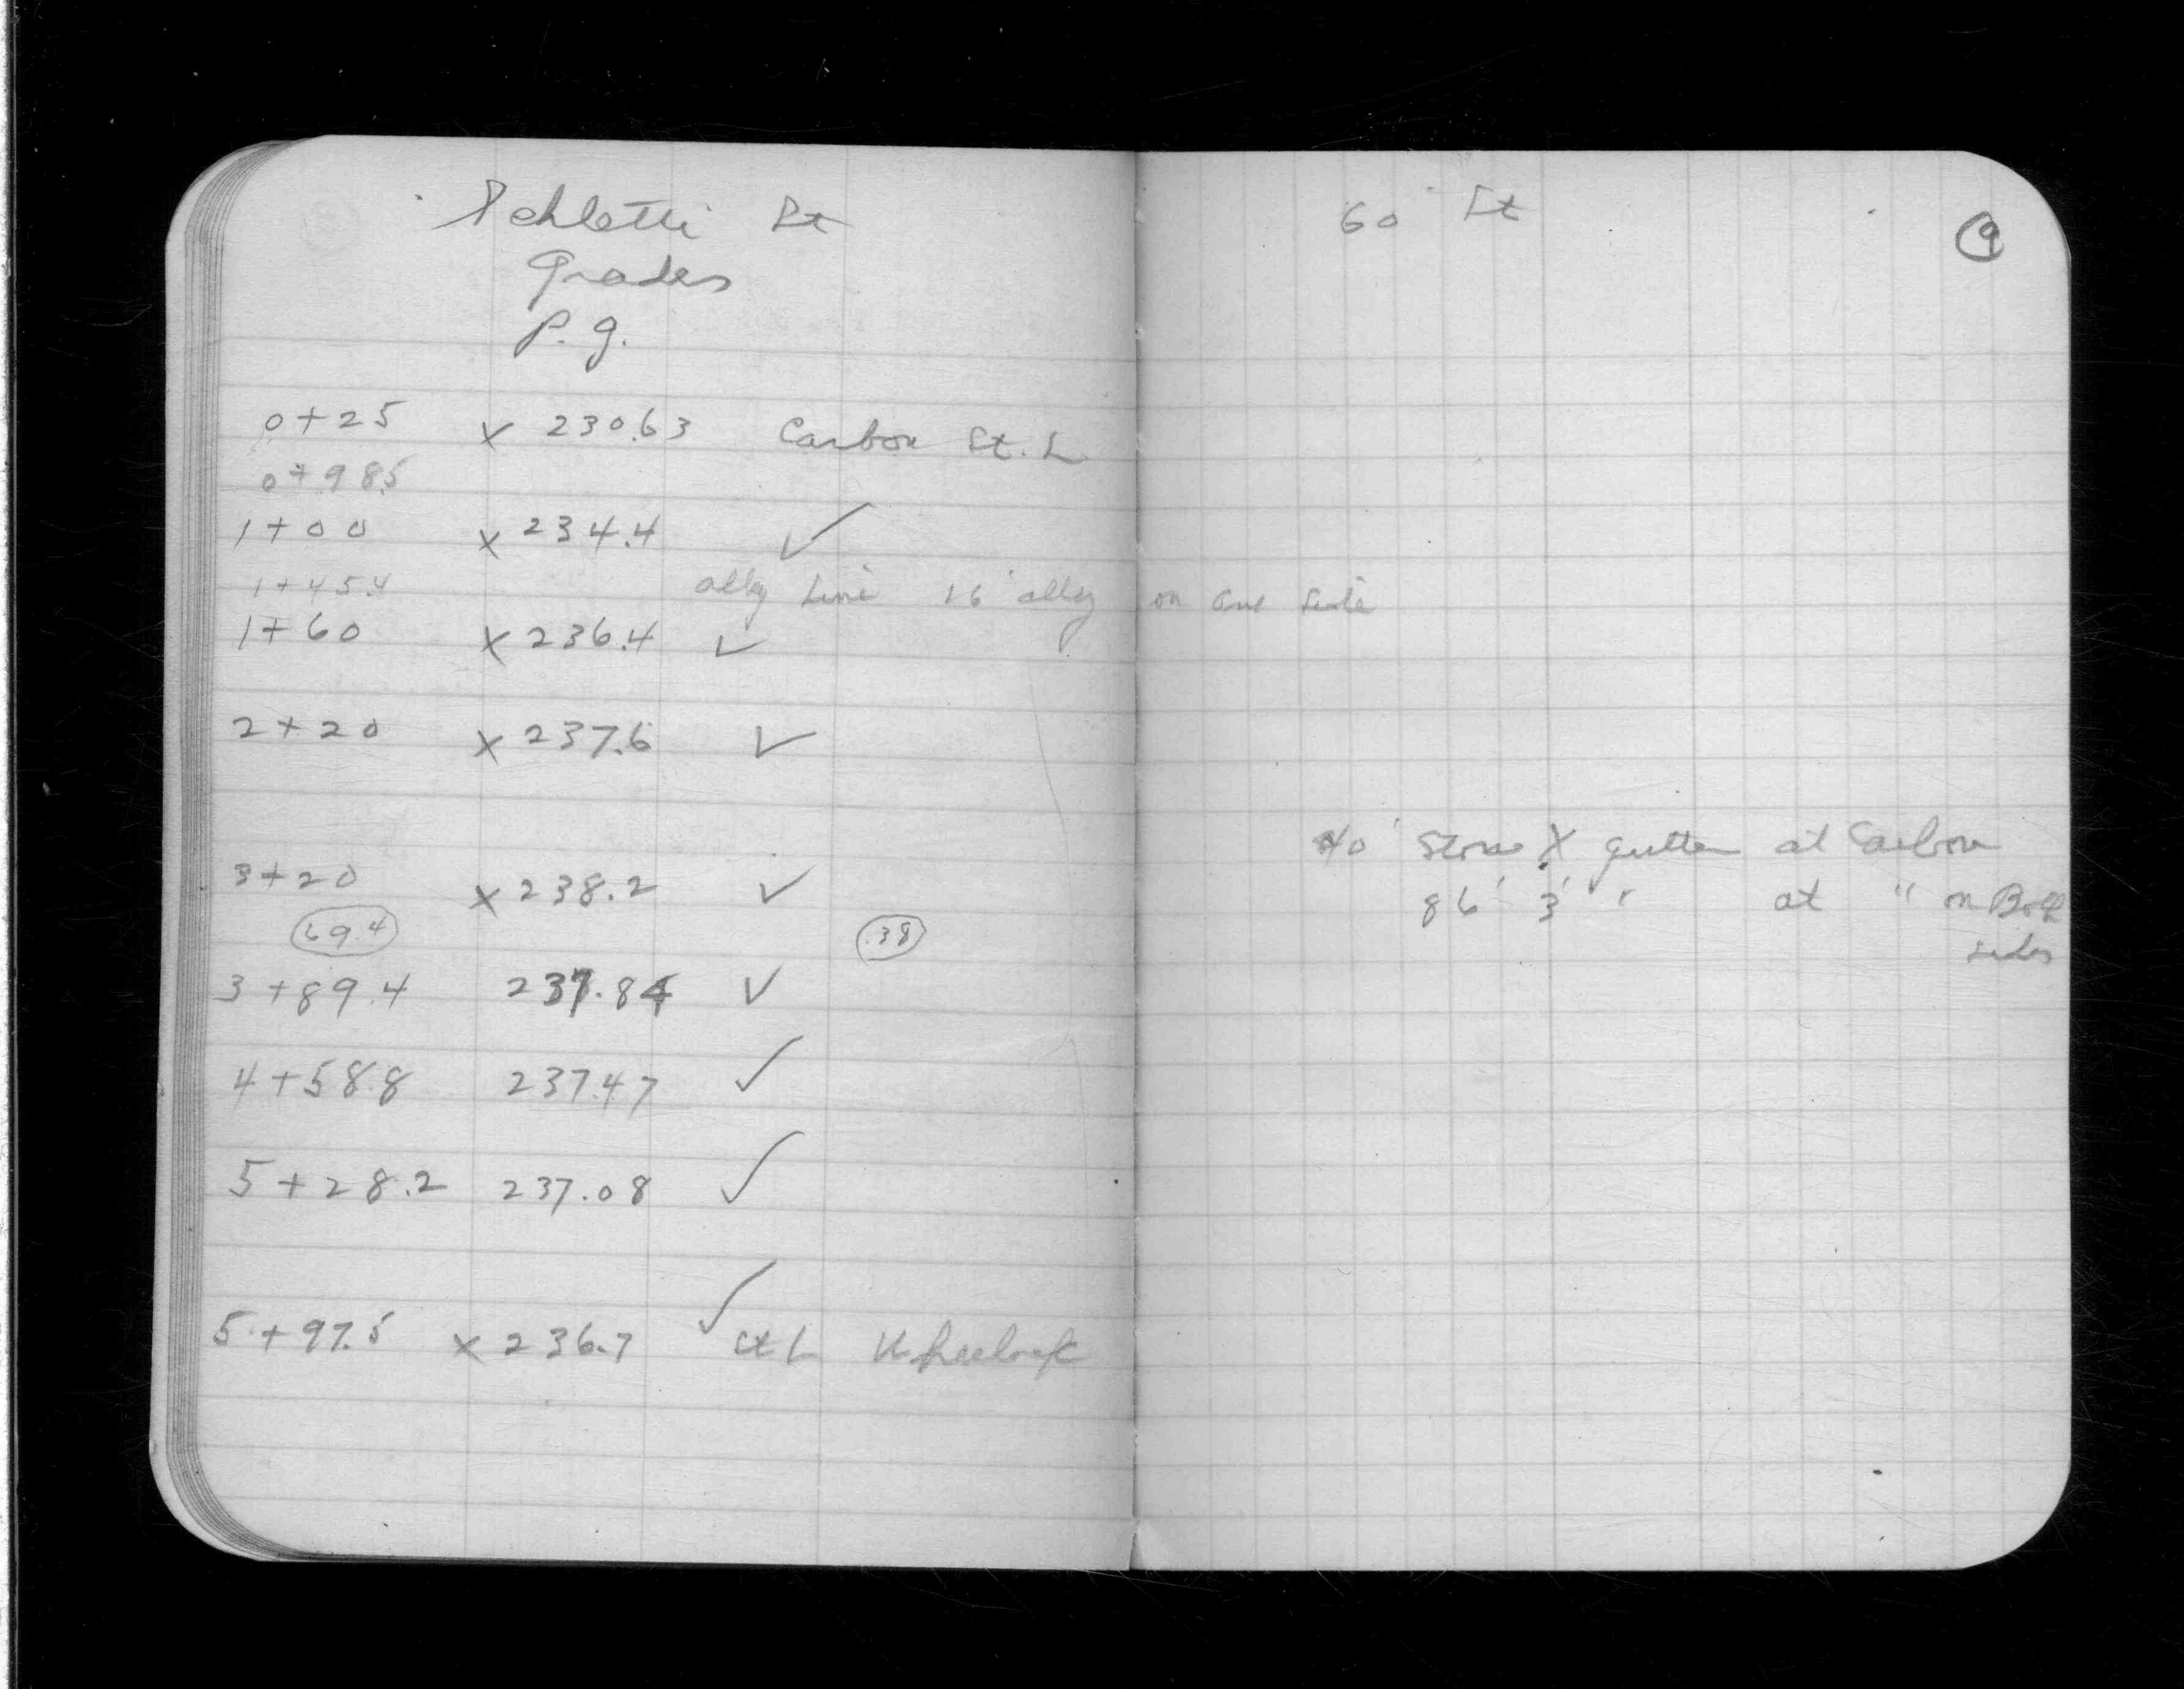 Schletti St
Grades
P.G.
0+25 x 230.63 Carbon St. L
0+98.5
1+00 x 234.4 ✓
1+45.4 alley Line 16' alley on one side
1+60 x 236.4 ✓
2+20 x 237.6 ✓
3+20 x 238.2 ✓
69.4 .38
3+89.4 237.84 ✓
4+58.8 237.47 ✓
5+28.2 237.08 ✓
5+97.5 x 236.7 ✓ St L Wheelock
60' St
9
40' Stone X gutter at Carbon
86' 3' " at " on Both
sides